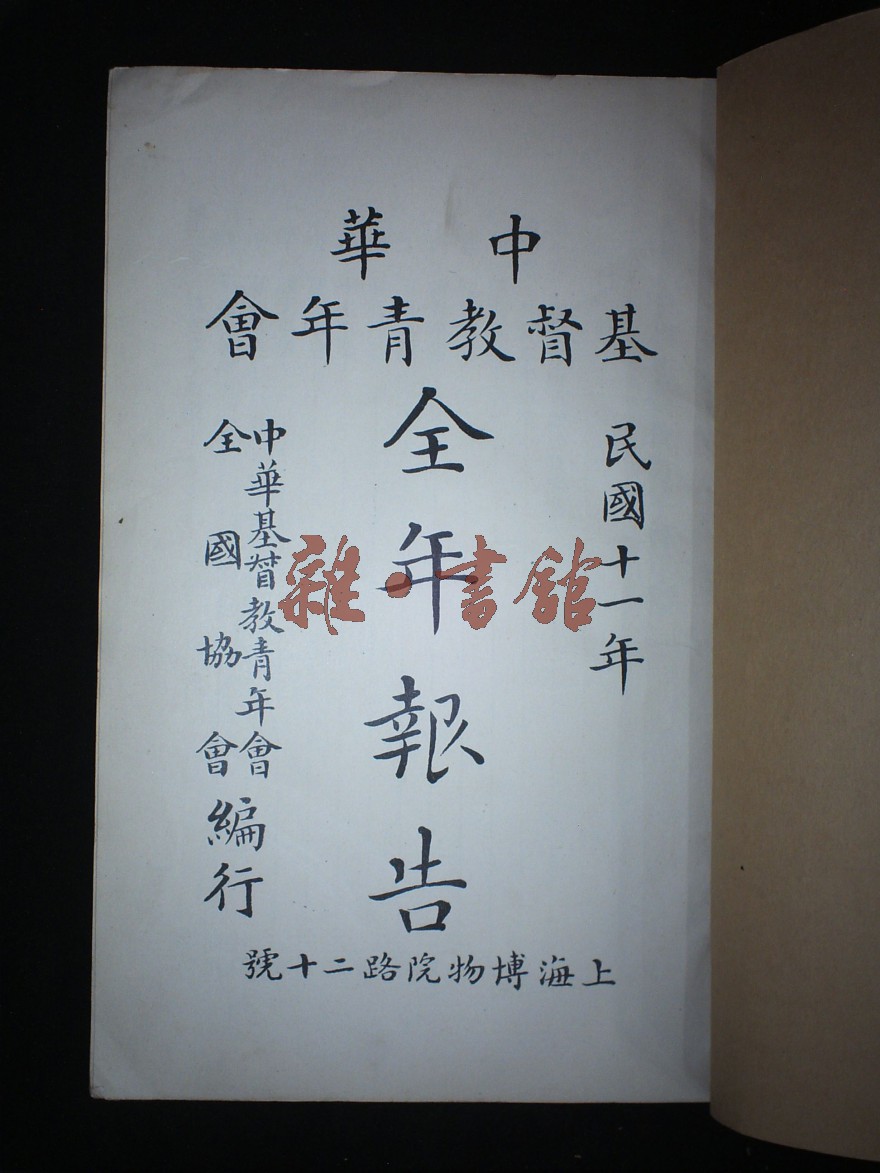 中華
基督教青年會
民國十一年
全年報告
中華基督教青年會
全國協會
編行
上海博物院路二十號
雜·書館